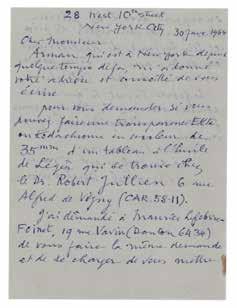 28 West 10th Street
New York City 30 janv. 196
Cher Monsieur
Arman, qui est à New York depuis
quelque temps déjà, m'a donné
votre adresse et conseillé de vous
écrire
pour vous demander si vous
pouvez faire une transparence Ekta
ou Kodachrome en couleur de
35mm d'un tableau à l'huile
de Léger qui se trouve chez
le Dr. Robert Jullien 6 rue
Alfred de Vigny (CAR. 58-11).
J'ai demandé à Maurice Lefebvre-
Foinet, 19 rue Vavin (Danton 64 34)
de vous faire la même demande
et de se charger de vous mettre